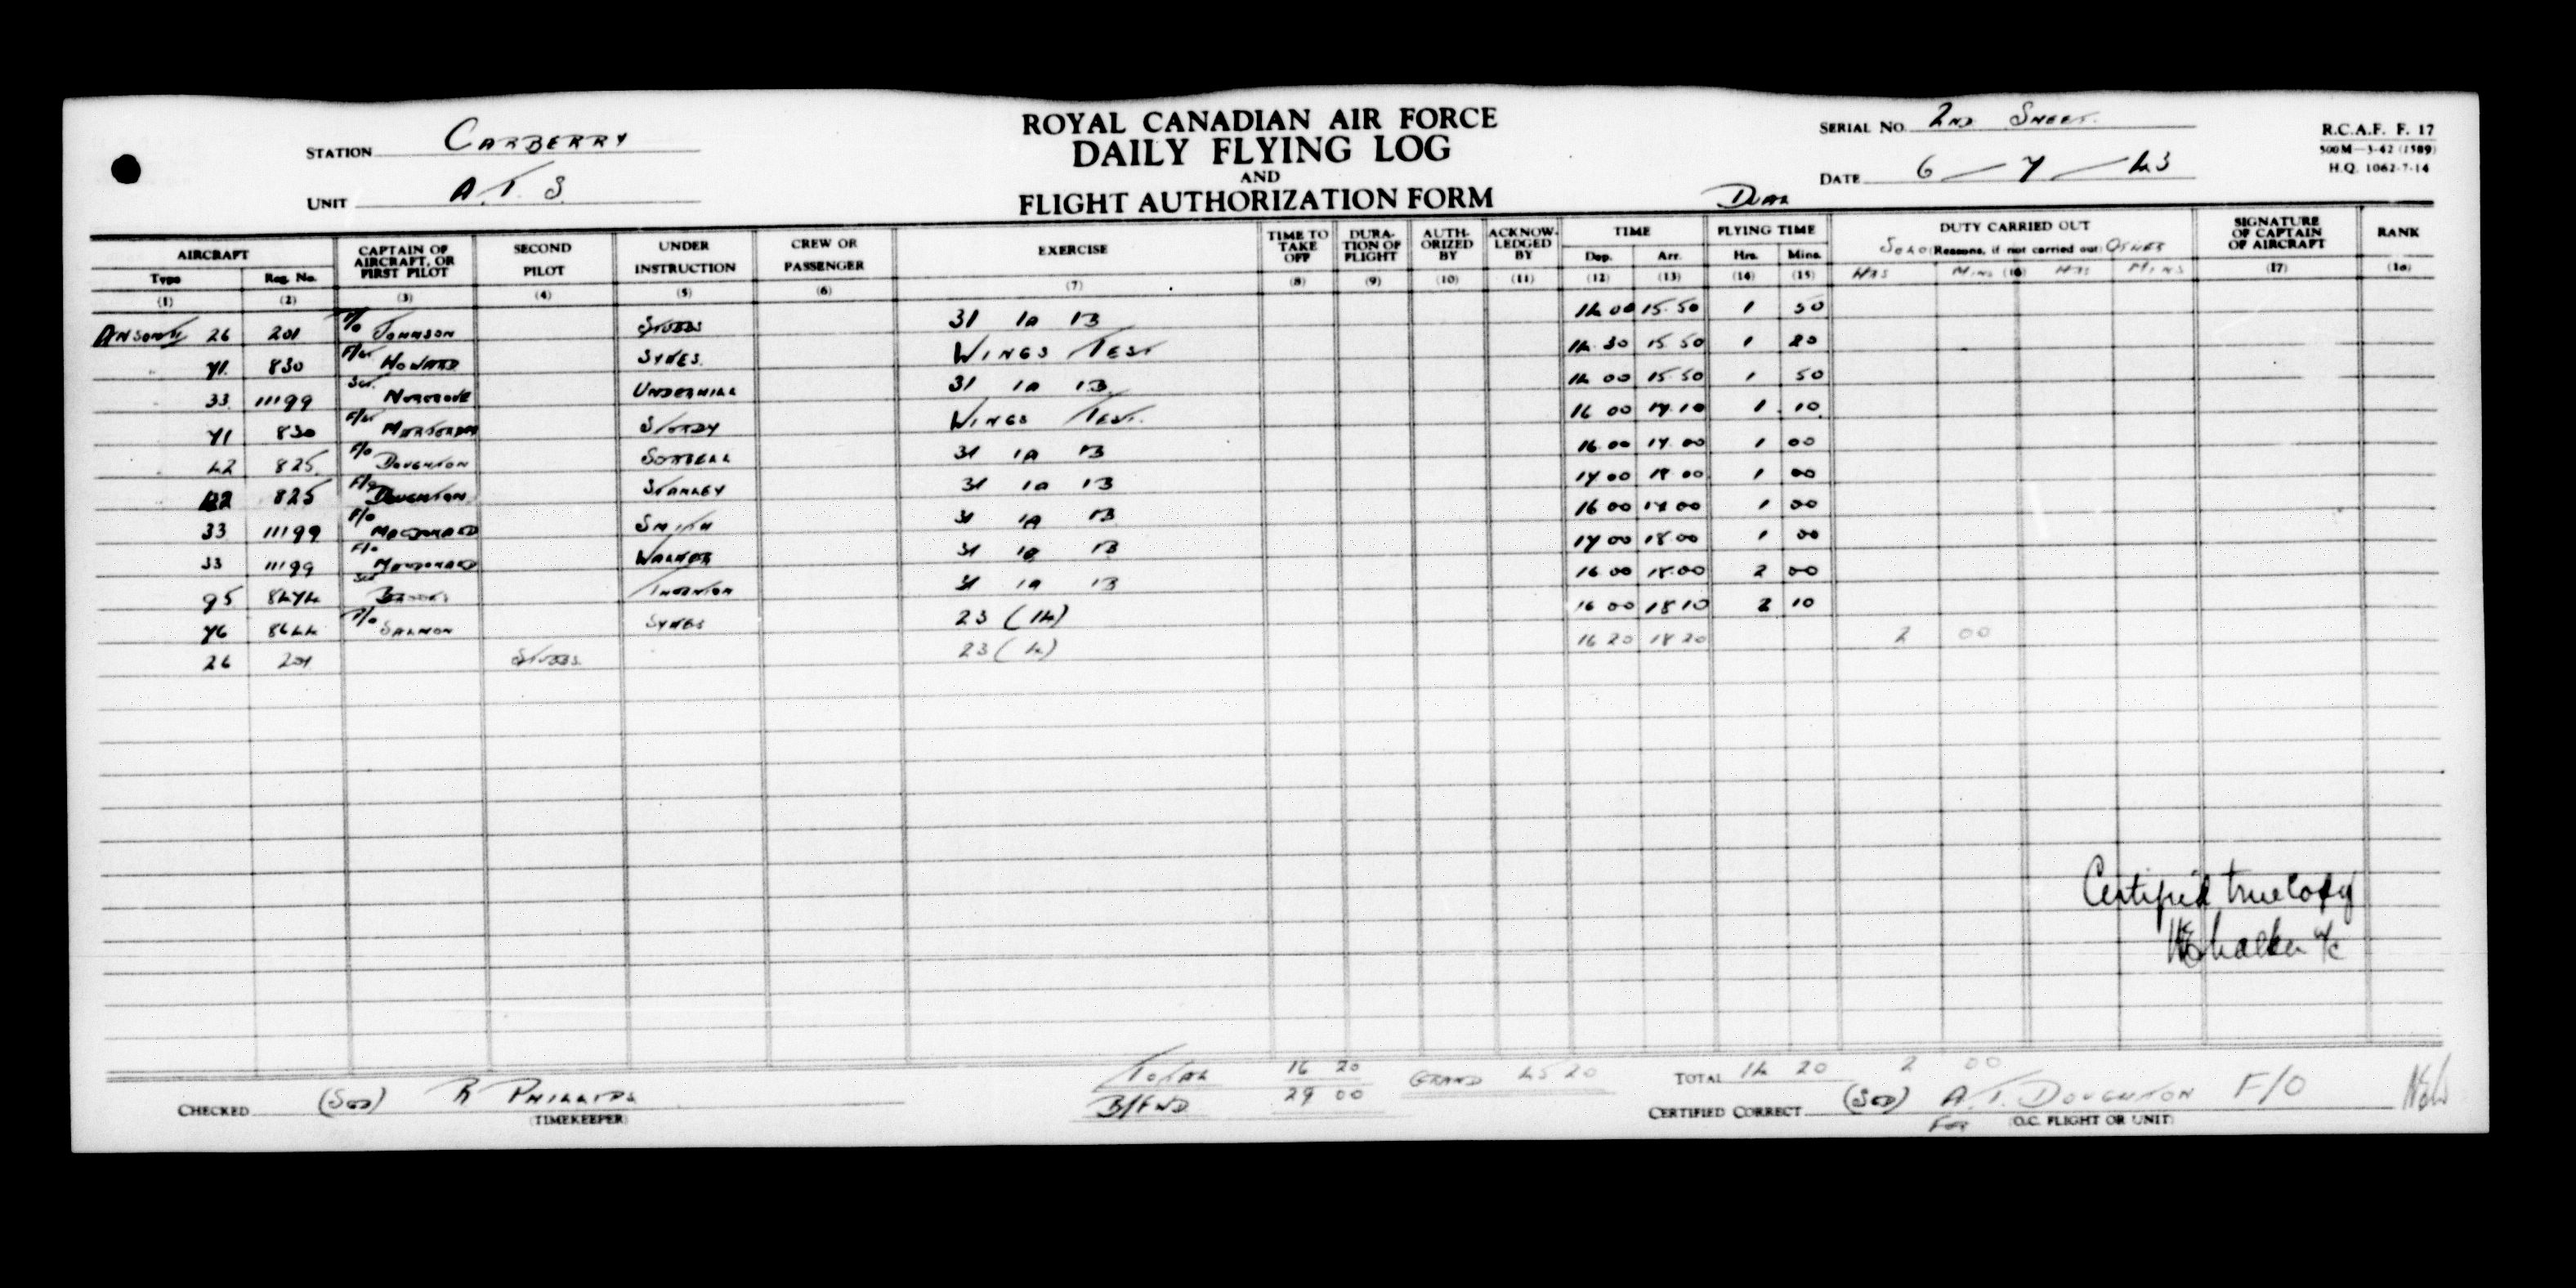 STATION CARBERRY
UNIT A.T.S.
ROYAL CANADIAN AIR FORCE
DAILY FLYING LOG
AND
FLIGHT AUTHORIZATION FORM
SERIAL NO. 2ND SHEET.
DATE 6 - 7 - 43
R.C.A.F. F. 17
500M-3-42 (1589)
H.Q. 1062-7-14
DUAL
AIRCRAFT CAPTAIN OF AIRCRAFT, OR FIRST PILOT SECOND PILOT UNDER INSTRUCTION CREW OR PASSENGER EXERCISE TIME TO TAKE OFF DURATION OF FLIGHT AUTHORIZED BY ACKNOWLEDGED BY TIME FLYING TIME DUTY CARRIED OUT SIGNATURE OF CAPTAIN OF AIRCRAFT RANK
Type Reg. No. Dep. Arr. Hrs. Mins. SOLO (Reasons, if not carried out) OTHER
HRS MINS HRS MINS
(1) (2) (3) (4) (5) (6) (7) (8) (9) (10) (11) (12) (13) (14) (15) (16) (17) (18)
ANSON II 26 201 P/O JOHNSON STUBBS 31 1A 1B 14 00 15.50 1 50
71 830 F/LT HOWARD SYKES. WINGS TEST 14 30 15 50 1 20
33 11199 SGT. NORGROVE UNDERHILL 31 1A 1B 14 00 15 50 1 50
71 830 F/LT STURDY WINGS TEST. 16 00 17.10 1 10
42 825 F/O DOUGHTON 31 1A 1B 16 00 17 00 1 00
42 825 F/O DOUGHTON STANLEY 31 1A 1B 17 00 18 00 1 00
33 11199 F/O MACDONALD SMITH 31 1A 1B 16 00 17 00 1 00
33 11199 F/O MACDONALD WALKER 31 1A 1B 17 00 18.00 1 00
95 8474 SGT THORNTON 31 1A 1B 16 00 18.00 2 00
76 8644 P/O SALMON SYKES 23 (14) 16 00 18 10 2 10
26 201 STUBBS 23 (4) 16 20 18 20 2 00
Certified true copy
W/C
TOTAL 16 20 GRAND 45 20
B/FWD 29 00
TOTAL 14 20 2 00
CHECKED (SGD) R PHILLIPS
(TIMEKEEPER)
CERTIFIED CORRECT (SGD) A.T. DOUGHTON F/O
FOR (O.C. FLIGHT OR UNIT)